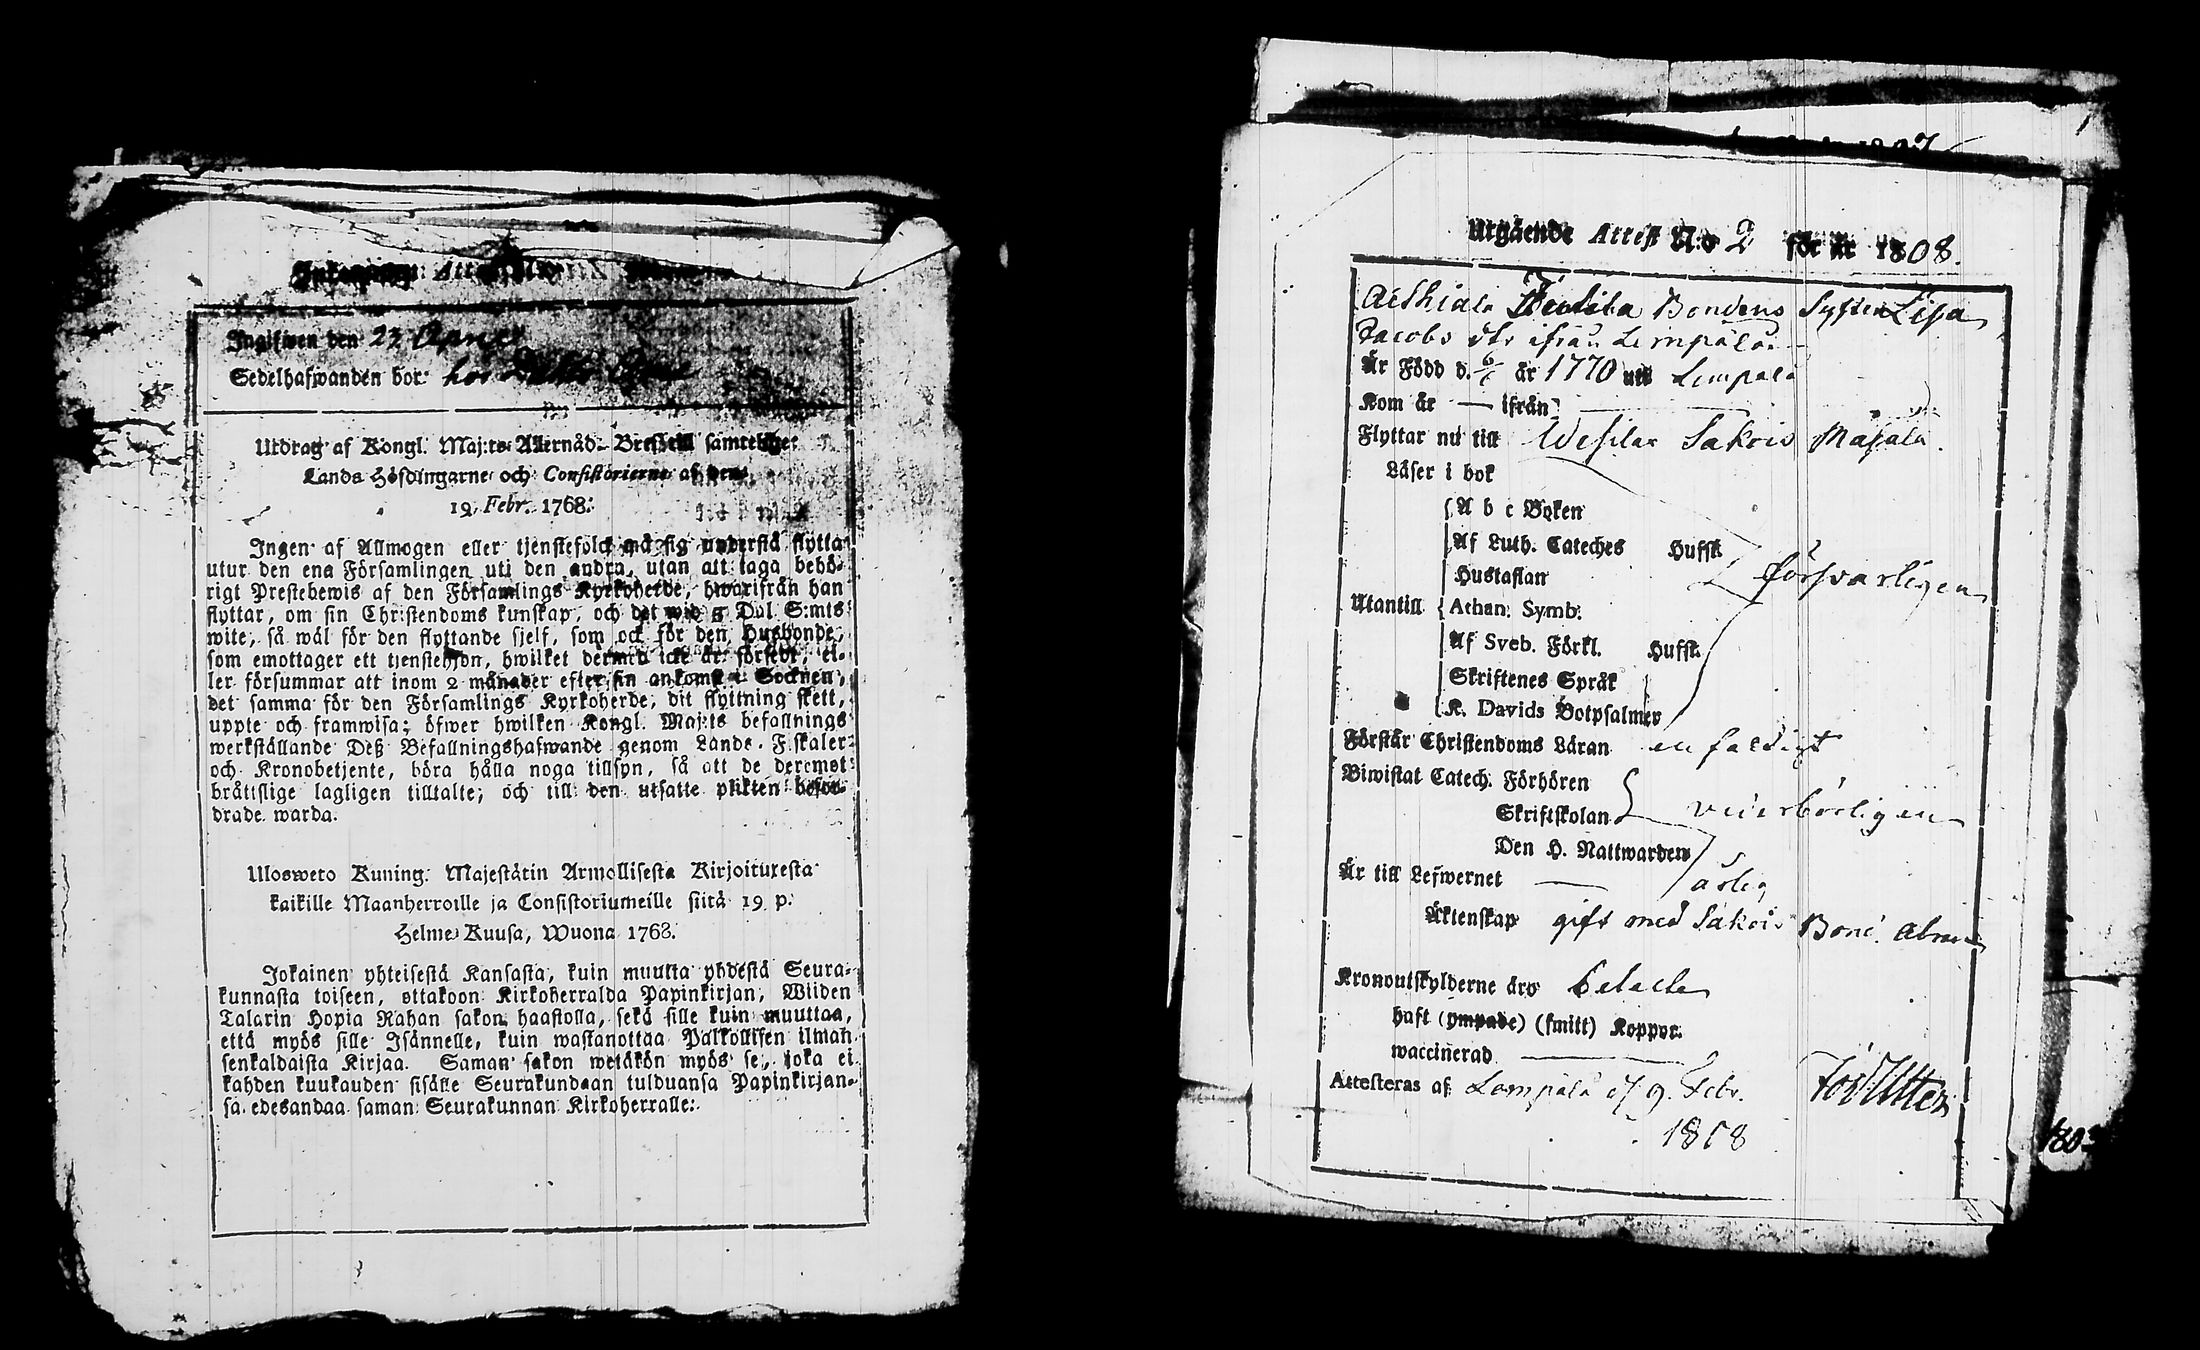 Ingifwen den 23
Sedelhafwanden bor: hos
Utdrag af Kongl. Maj:ts Allernåd. Bref till samtelige
Lands Höfdingarne och Consistorierne af den
19. Febr. 1768.
Ingen af Allmogen eller tjenstefolck må sig understå flytta
utur den ena Församlingen uti den andra, utan att taga behö-
rigt Prestebewis af den Församlings Kyrkoherde, hwarifrån han
flyttar, om sin Christendoms kunskap, och det wid 5 Dal. S:mts
wite, så wäl för den flyttande sjelf, som ock för den Husbonde,
som emottager ett tjenstehjon, hwilket dermed icke är försedt, el-
ler försummar att inom 2 månader efter sin ankomst i Socknen,
det samma för den Församlings Kyrkoherde, dit flyttning skett,
uppte och framwisa; öfwer hwilken Kongl. Maj:ts befallnings
werkställande Deß Befallningshafwande genom Lands-Fiskaler
och Kronobetjente, böra hålla noga tillsyn, så att de deremot
bråttslige lagligen tilltalte, och till den utsatte plikten befor-
drade warda.
Ulosweto Kuning. Majestätin Armollisesta Kirjoituxesta
kaikille Maanherroille ja Consistoriumeille siitä 19 p.
Helme Kuusa, Wuona 1768.
Jokainen yhteisestä Kansasta, kuin muutta yhdestä Seura-
kunnasta toiseen, ottakoon Kirkoherralda Papinkirjan, Wiiden
Talarin Hopia Rahan sakon haastolla, sekä sille kuin muuttaa,
että myös sille Isännelle, kuin wastanottaa Palkollisen ilman
senkaldaista Kirjaa. Saman sakon wetäkön myös se, joka ei
kahden kuukauden sisälle Seurakundaan tulduansa Papinkirjan-
sa edesandaa saman Seurakunnan Kirkoherralle.
Utgående Attest N:o 2 för år 1808.
Bondens Syster Lisa
Jacobs dtr ifrån Lempälä
Är Född d. 6/6 år 1770 uti Lempälä
Kom år — ifrån —
Flyttar nu till Wesilax Sakois Masala.
Läser i bok
A b c Boken
Af Luth. Cateches Hufst.
Hustaflan
försvarligen
Utantill Athan. Symb.
Af Sveb. Förkl. Hufst.
Skriftenes Språk
K. Davids Botpsalmer
Förstår Christendoms Läran enfaldigt
Biwistat Catech. Förhören
Skriftskolan vederbörligen
Den H. Nattwarden
Är till Lefwernet — ärlig
Äktenskap gift med Sakois Bond. Abram
Kronoutskylderne äro betalte
haft (ympade) (smitt) Koppor.
waccinerad —
Attesteras af Lempälä d. 9. Febr.
1808
1803